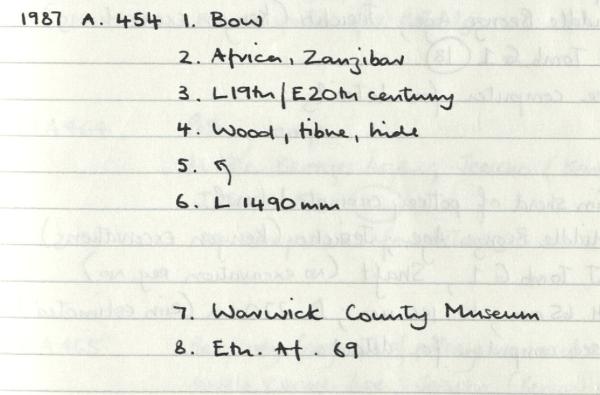 1987 A. 454 1. Bow
2. Africa, Zanzibar
3. L19th/E20th century
4. Wood, fibre, hide
5. ↰
6. L 1490mm
7. Warwick County Museum
8. Eth. Af. 69